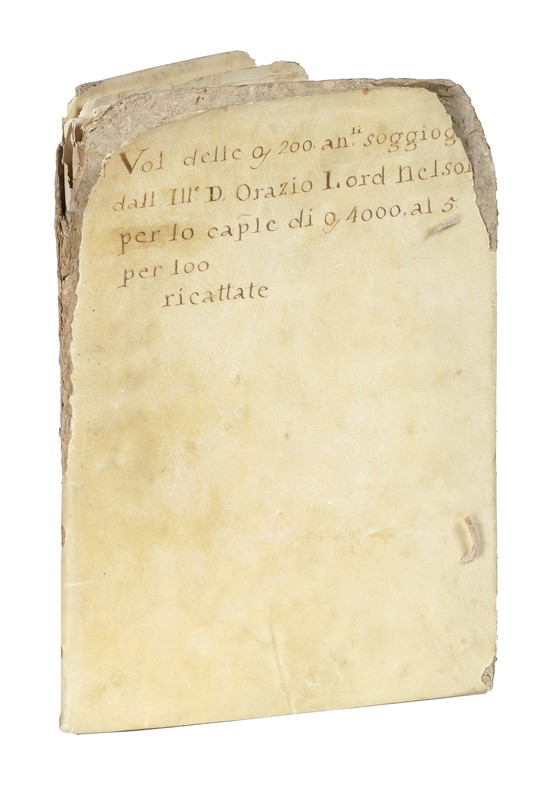 Vol delle ꝯ 200. an.li soggiog
dall Ill.e D. Orazio Lord Nelson
per lo cap̃le di ꝯ 4000. al 5
per 100
ricattate